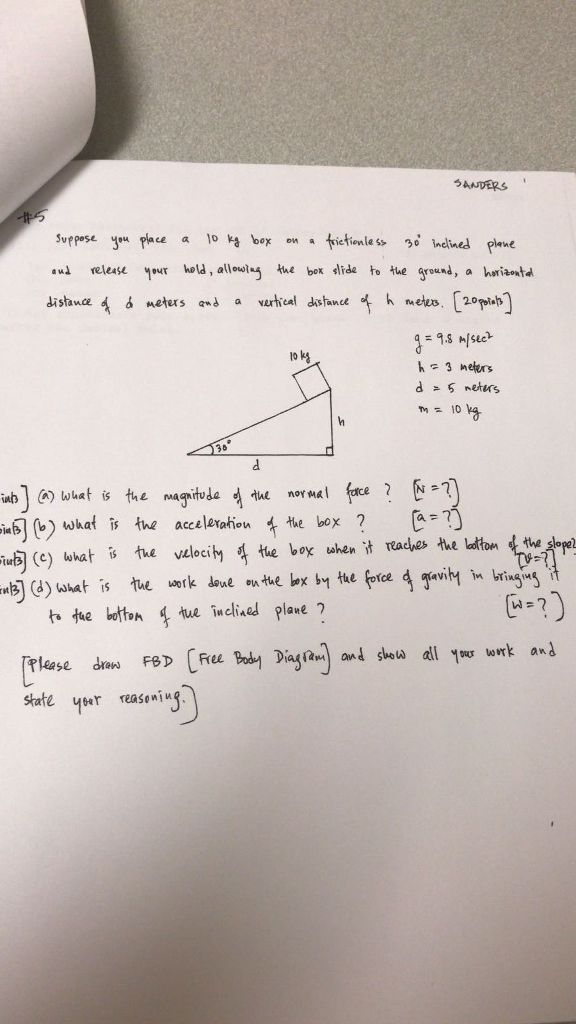 SANDERS
#5
Suppose you place a 10 kg box on a frictionless 30° inclined plane
and release your hold, allowing the box slide to the ground, a horizontal
distance of d meters and a vertical distance of h meters. [20 points]
g = 9.8 m/sec²
h = 3 meters
d = 5 meters
m = 10 kg
10 kg
h
30°
d
(a) What is the magnitude of the normal force ? [N = ?]
(b) What is the acceleration of the box ? [a = ?]
(c) What is the velocity of the box when it reaches the bottom of the slope?
[v = ?]
(d) What is the work done on the box by the force of gravity in bringing it
to the bottom of the inclined plane ? [W = ?]
[Please draw FBD [Free Body Diagram] and show all your work and
state your reasoning.]